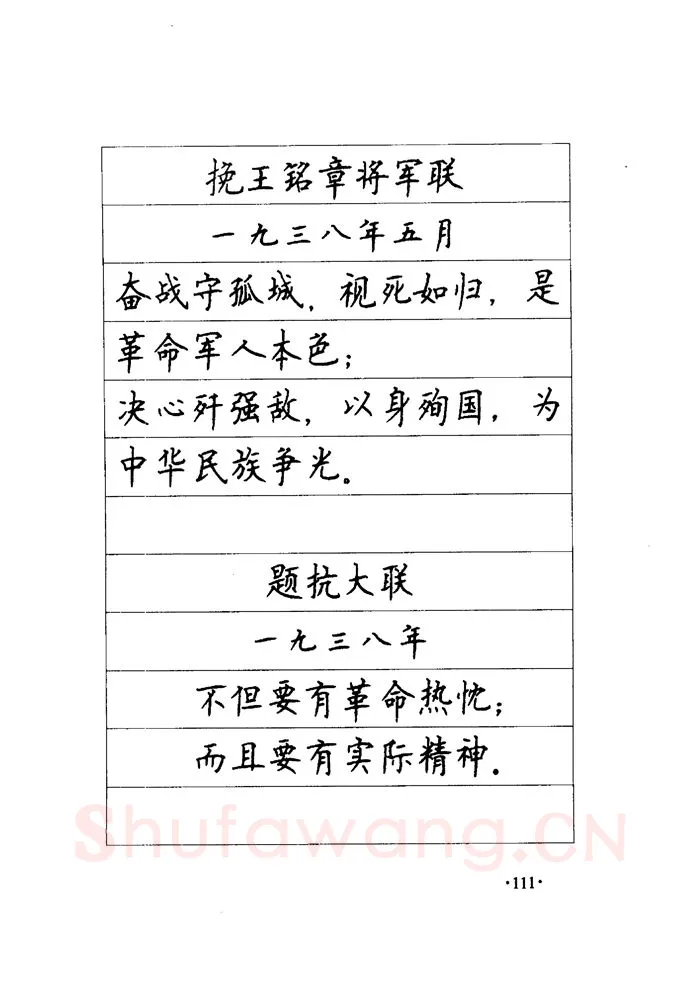 挽王铭章将军联
一九三八年五月
奋战守孤城，视死如归，是
革命军人本色；
决心歼强敌，以身殉国，为
中华民族争光。
题抗大联
一九三八年
不但要有革命热忱；
而且要有实际精神．
Shufawang.CN
·111·